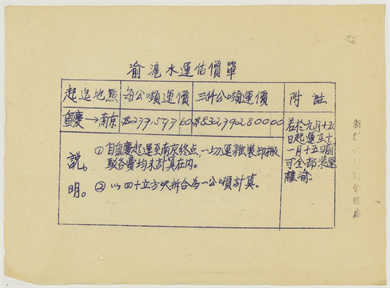 渝滬水運估價單
起迄地點 每公噸運價 三千公噸運價 附註
重慶→南京 $277,597.60 $832,792,800.00
若於九月十五
日起運至十
一月十五日前
日全部裝運
離渝。
說明。
①自重慶起運至南京終点,一切運雜裝卸搬
駁各費均未計算在內。
②以四十立方呎拆合為一公噸計算。